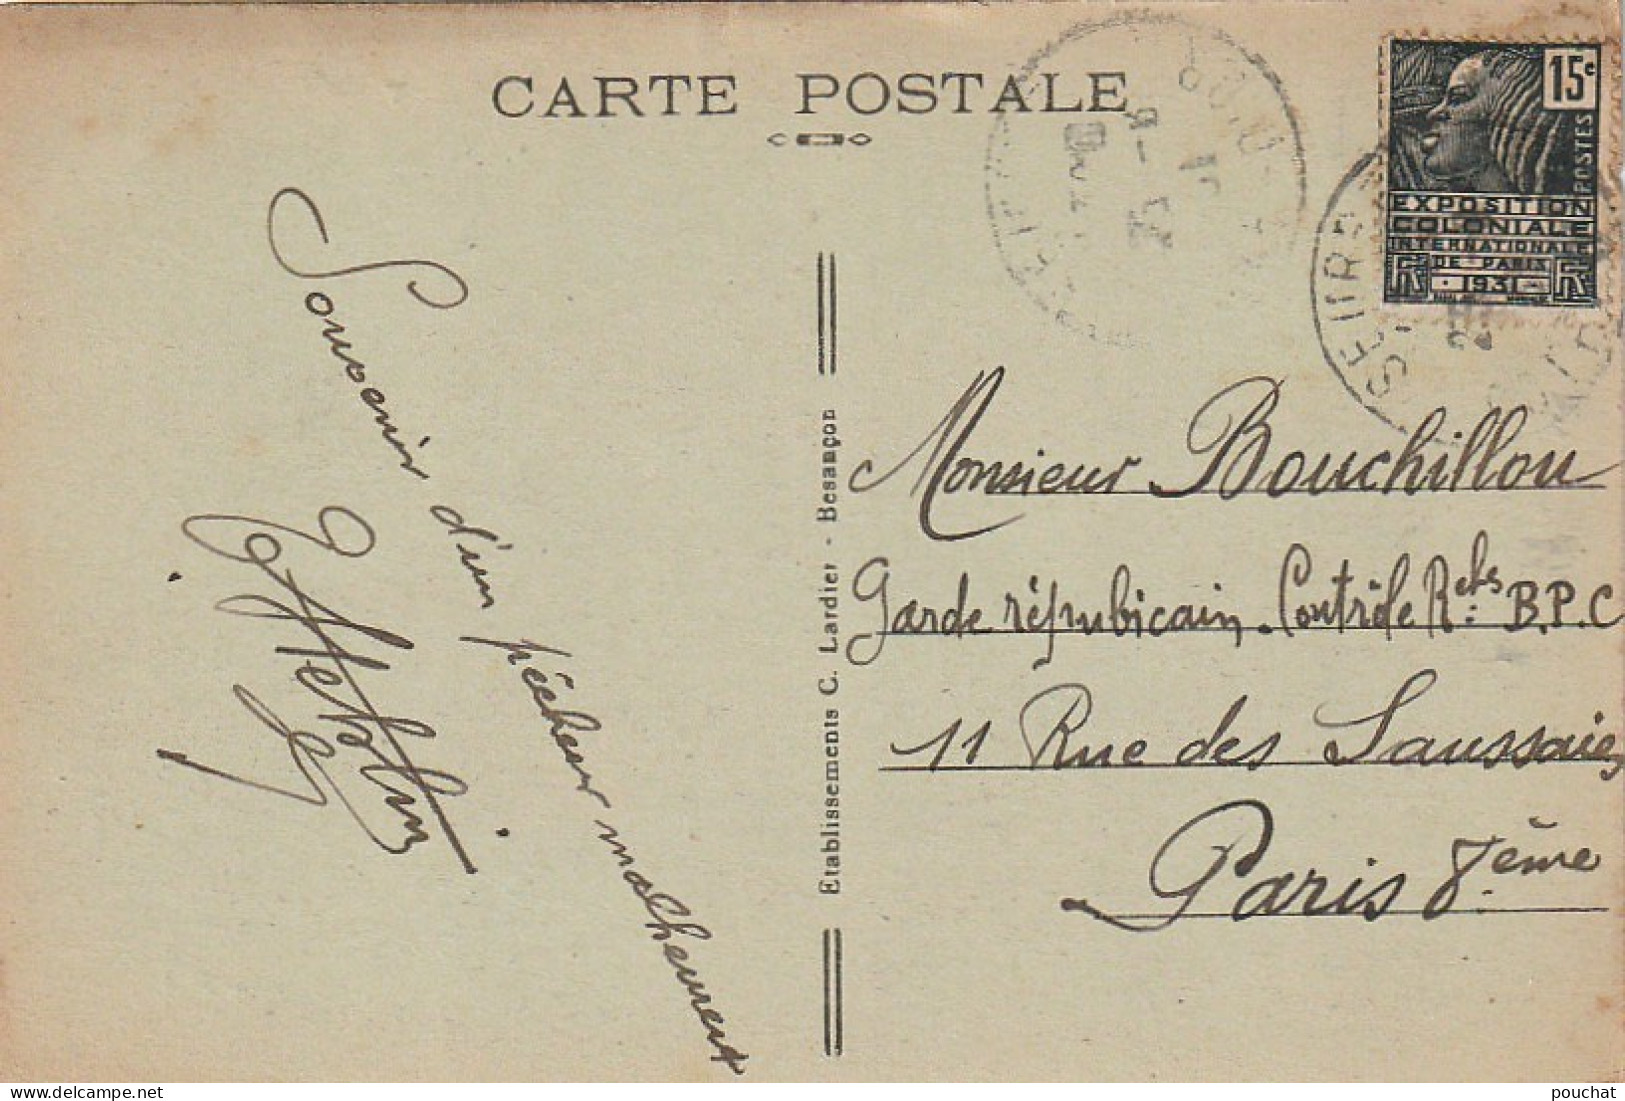 CARTE POSTALE
15c
POSTES
EXPOSITION
COLONIALE
INTERNATIONALE
DE PARIS
1931
SEURRE
Souvenir d'un pêcheur malheureux
Etablissements C. Lardier - Besançon
Monsieur Bouchillou
Garde républicain. Contrôle Rets B.P.C
11 Rue des Saussaies
Paris 8ème
pouchat